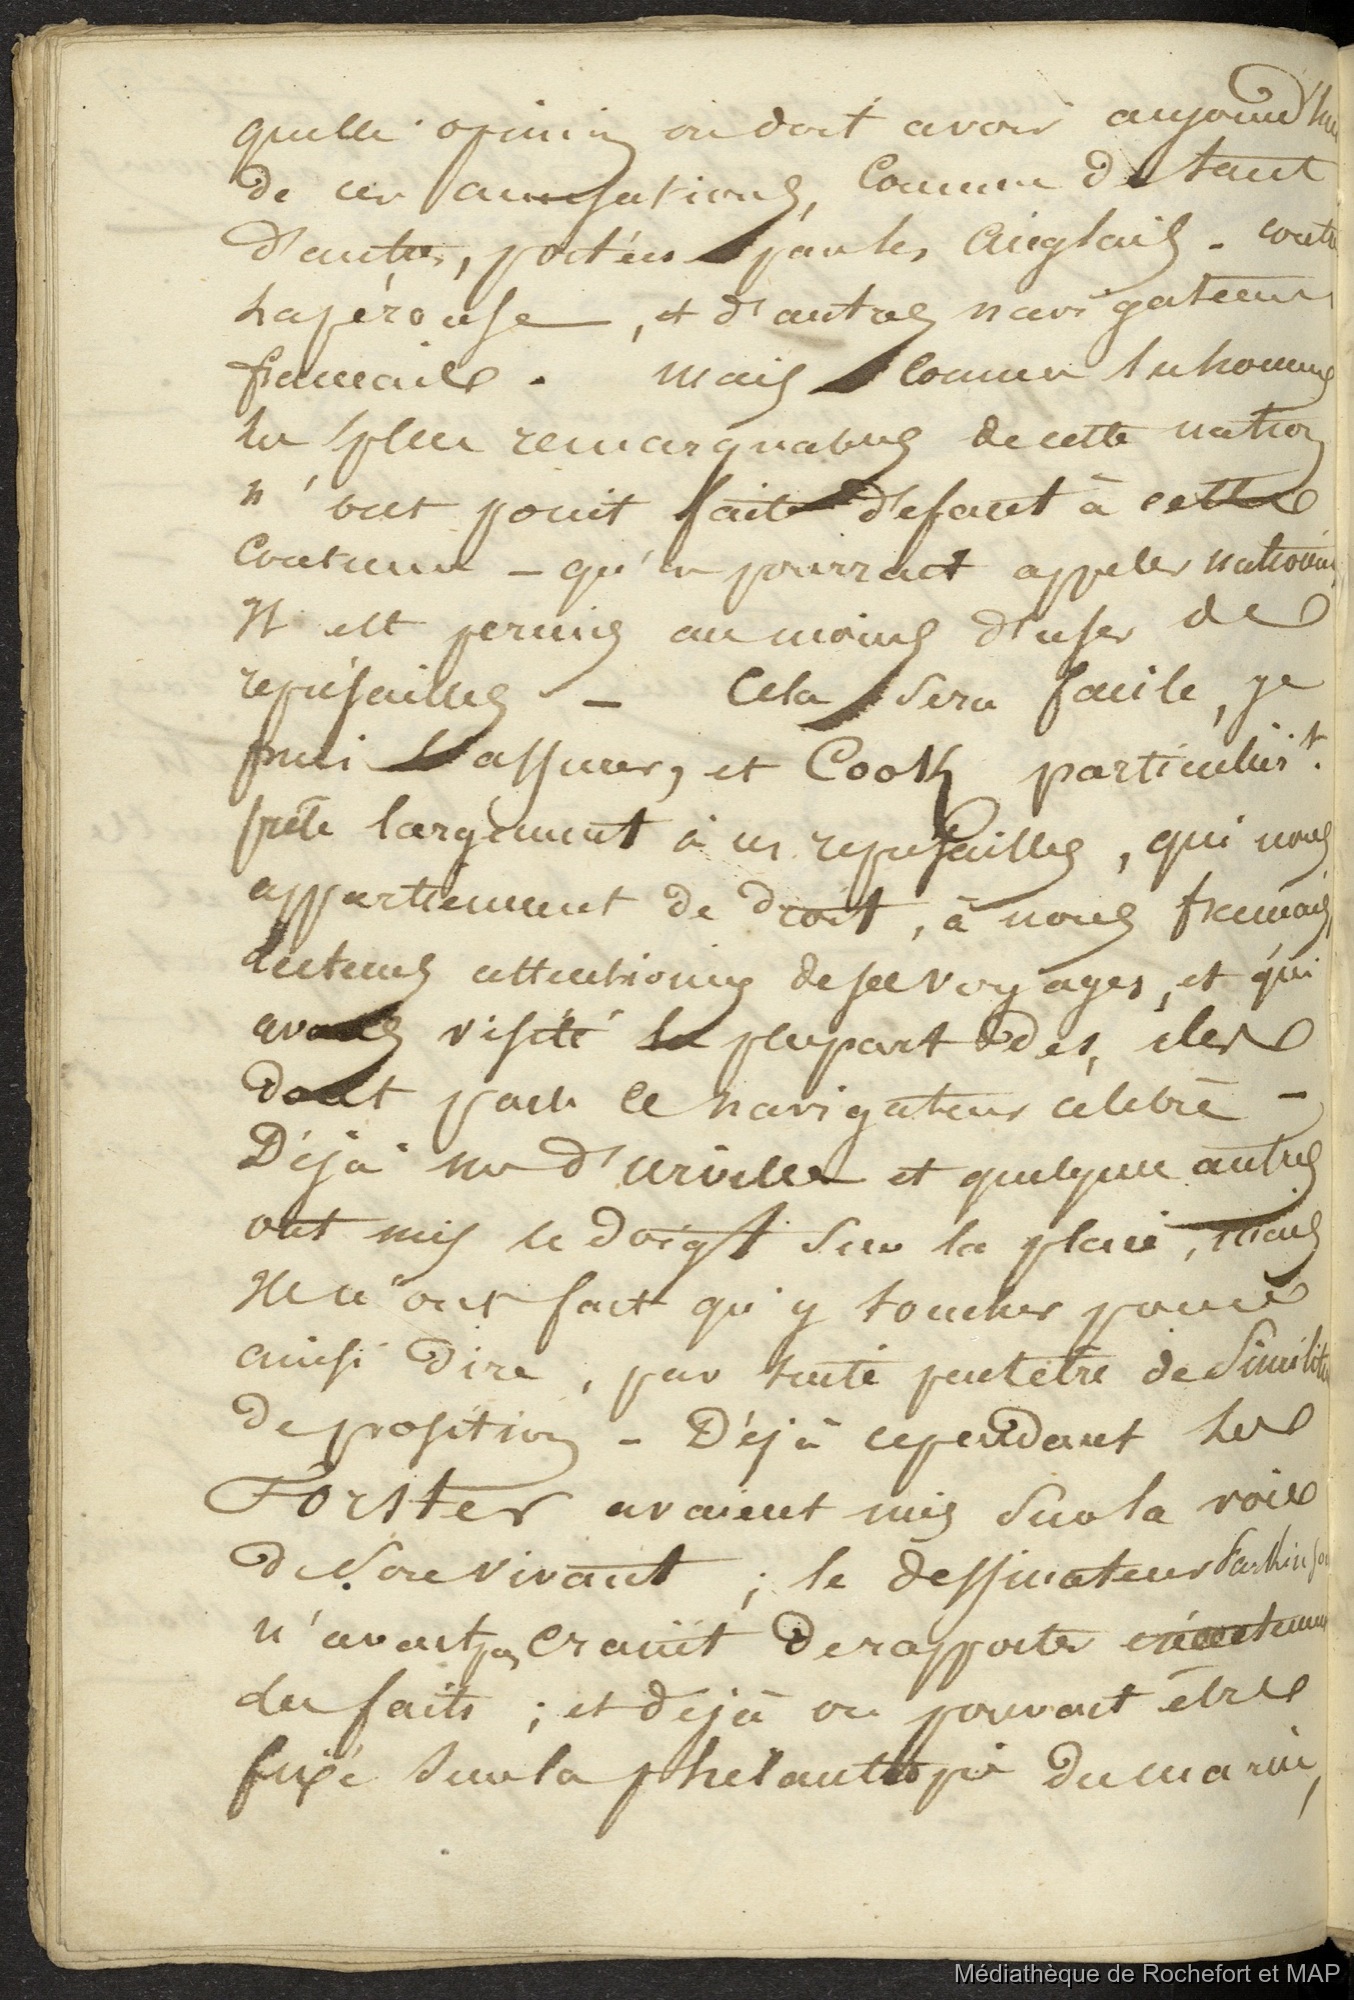 quelle opinion on doit avoir aujourd'hui
de ces accusations, comme de tant
d'autres, portées par les Anglais - contre
Lapérouse, et d'autres navigateurs
français. mais comme les hommes
les plus remarquables de cette nation
n'ont point fait défaut à cette
coutume - qu'on pourrait appeler nationale,
Il est permis au moins d'user de
représailles - Cela sera facile, je
puis l'assurer, et Cook particulièrt.
prête largement à ces représailles, qui nous
appartiennent de droit, à nous français,
lecteurs attentionnés de ses voyages, et qui
avons visité la plupart des îles
dont parle ce navigateur célèbre -
Déjà Mr d'urville et quelques autres
ont mis le doigt sur la plaie, mais
Ils n'ont fait qu'y toucher pour
ainsi dire, par suite peut être de Similitude
de position - Déjà cependant les
Forster avaient mis sur la voie
de son vivant ; le dessinateur Parkinson
n'avait pas craint de rapporter
des faits ; et déjà on pouvait être
fixé sur la phelantropie du marin,
Médiathèque de Rochefort et MAP